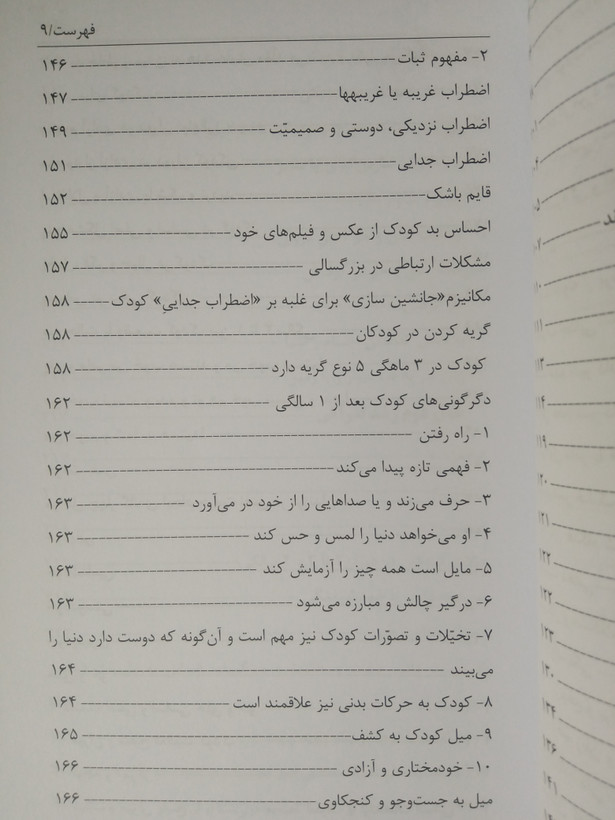 فهرست/۹
۲- مفهوم ثبات ۱۴۶
اضطراب غریبه یا غریبهها ۱۴۷
اضطراب نزدیکی، دوستی و صمیمیّت ۱۴۹
اضطراب جدایی ۱۵۱
قایم باشک ۱۵۲
احساس بد کودک از عکس و فیلم‌های خود ۱۵۵
مشکلات ارتباطی در بزرگسالی ۱۵۷
مکانیزم«جانشین سازی» برای غلبه بر «اضطراب جداییِ» کودک ۱۵۸
گریه کردن در کودکان ۱۵۸
کودک در ۳ ماهگی ۵ نوع گریه دارد ۱۵۸
دگرگونی‌های کودک بعد از ۱ سالگی ۱۶۲
۱- راه رفتن ۱۶۲
۲- فهمی تازه پیدا می‌کند ۱۶۲
۳- حرف می‌زند و یا صداهایی را از خود در می‌آورد ۱۶۳
۴- او می‌خواهد دنیا را لمس و حس کند ۱۶۳
۵- مایل است همه چیز را آزمایش کند ۱۶۳
۶- درگیر چالش و مبارزه می‌شود ۱۶۳
۷- تخیّلات و تصوّرات کودک نیز مهم است و آن‌گونه که دوست دارد دنیا را
می‌بیند ۱۶۴
۸- کودک به حرکات بدنی نیز علاقمند است ۱۶۴
۹- میل کودک به کشف ۱۶۵
۱۰- خودمختاری و آزادی ۱۶۶
میل به جست‌وجو و کنجکاوی ۱۶۶